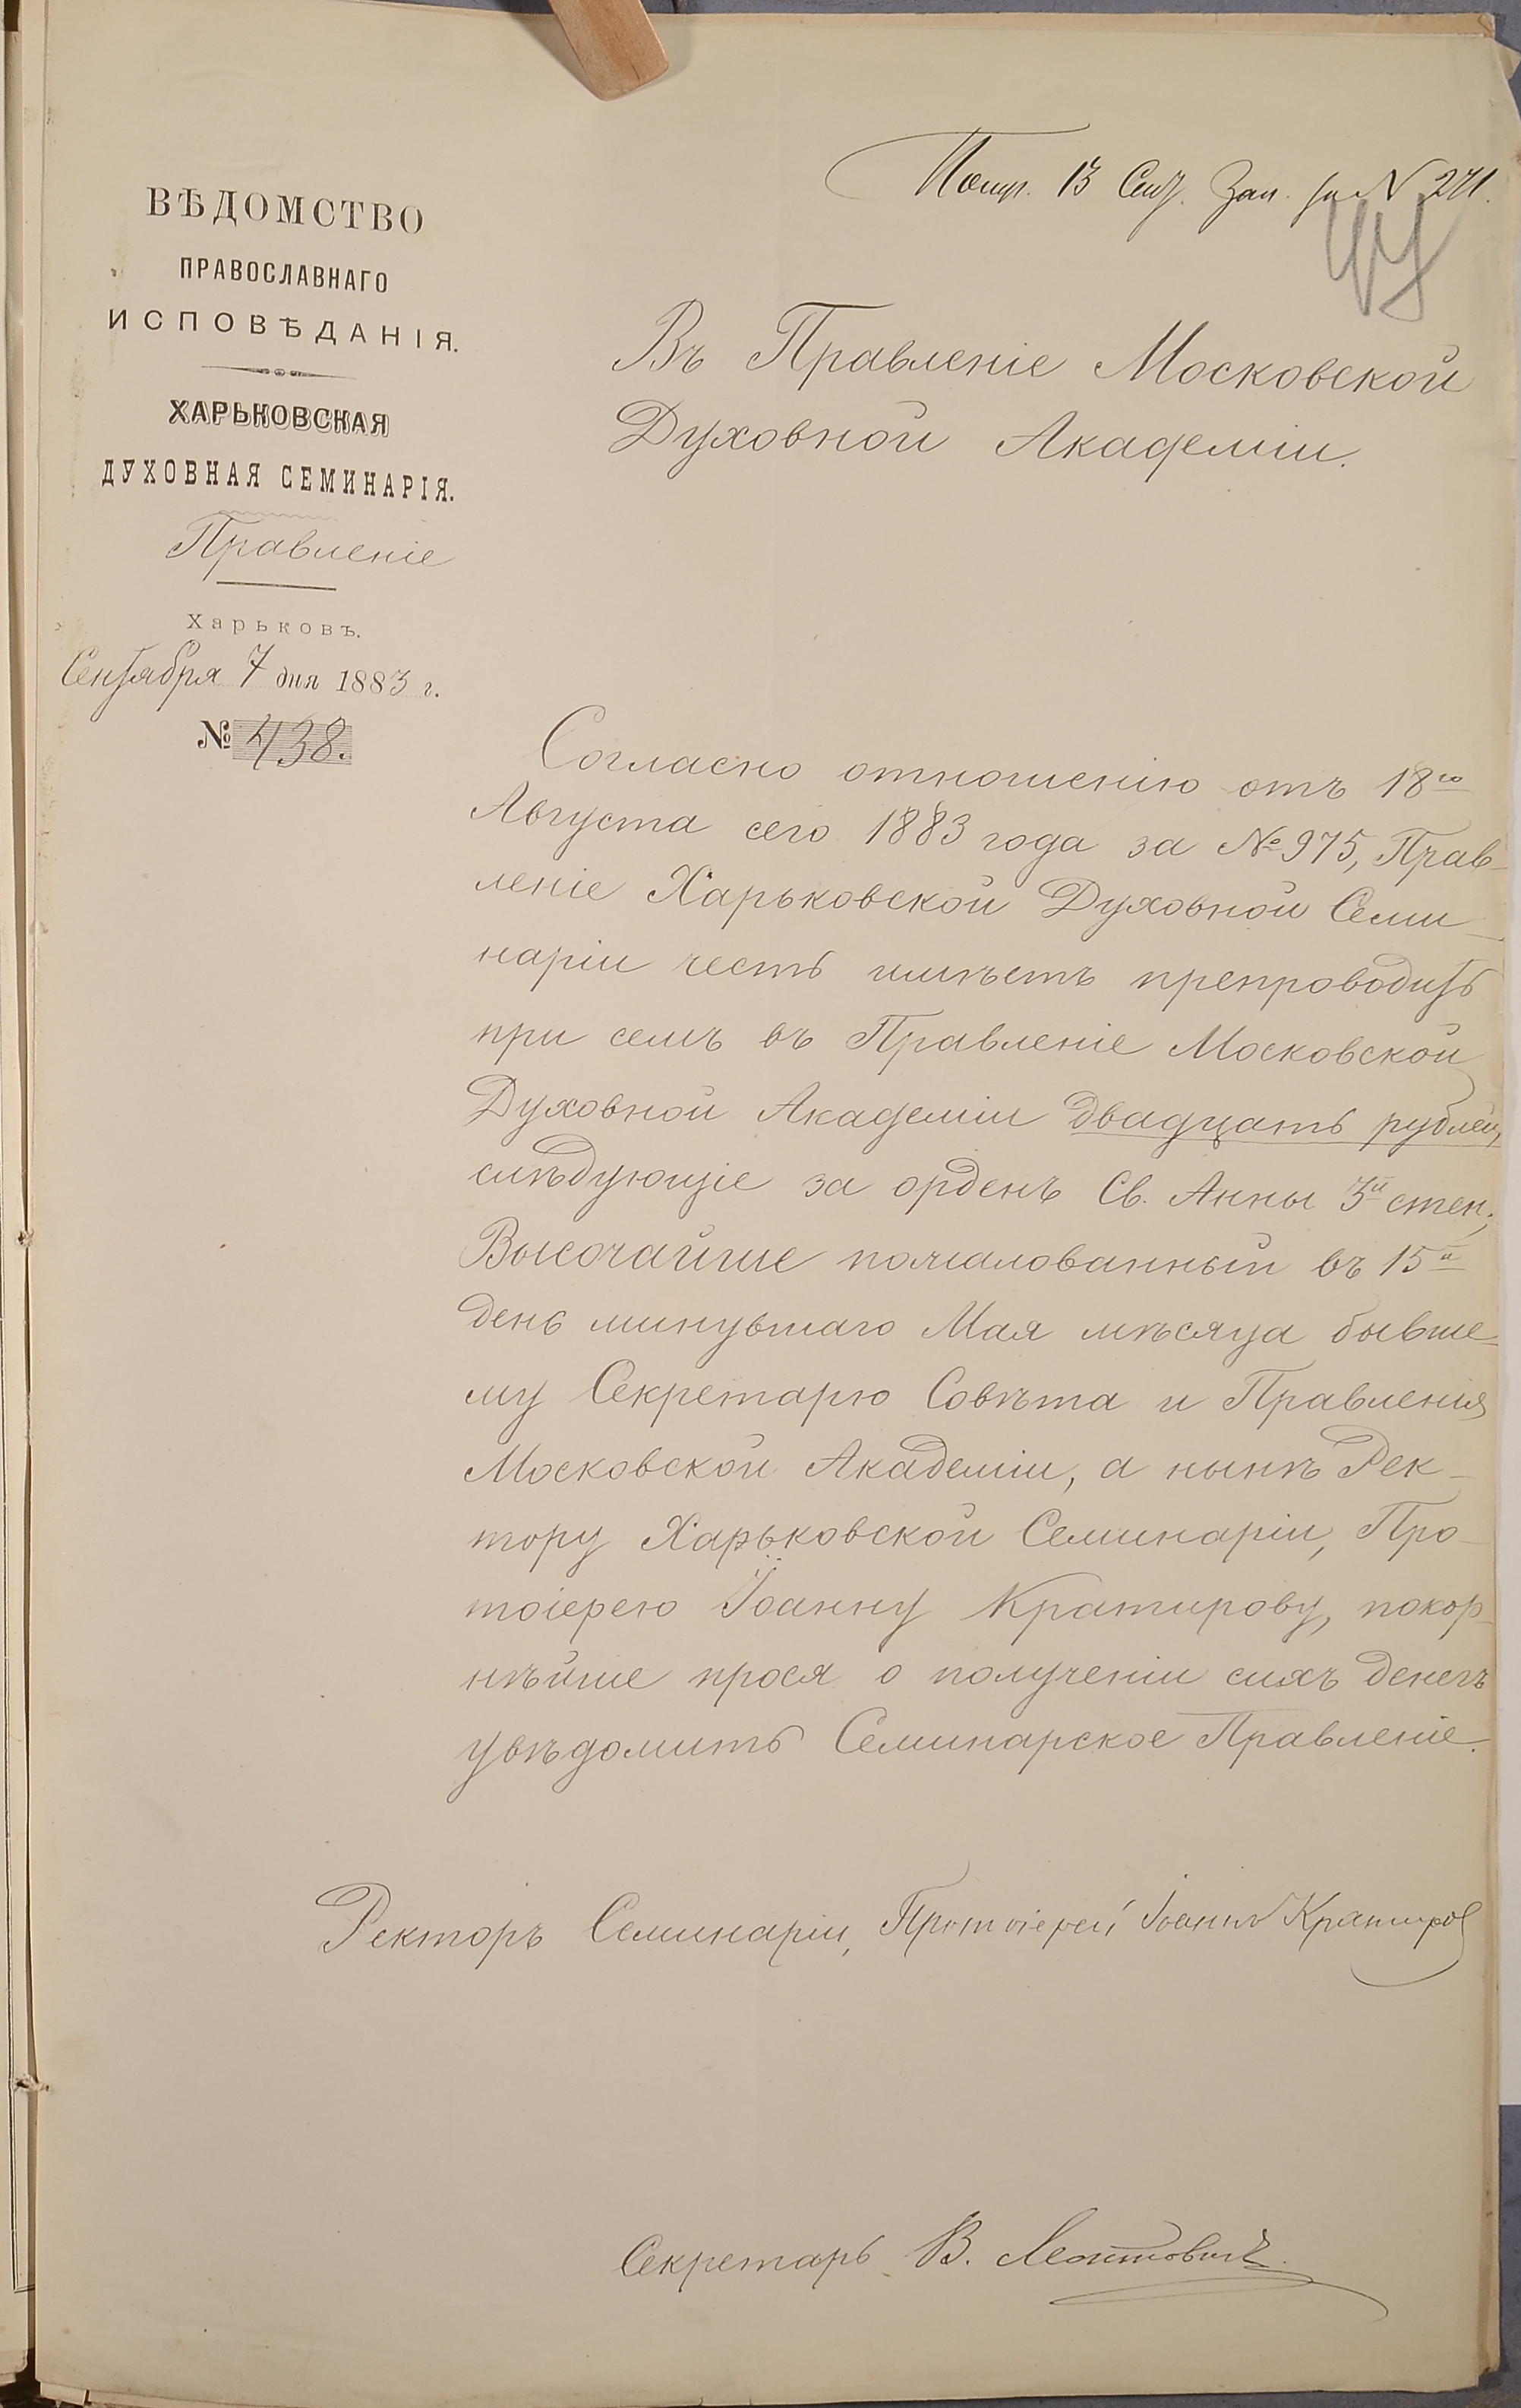 Получ. 13 Сент. Зап. за № 271.
ВѢДОМСТВО
ПРАВОСЛАВНАГО
ИСПОВѢДАНІЯ.
ХАРЬКОВСКАЯ
ДУХОВНАЯ СЕМИНАРІЯ.
Правленіе
Харьковъ.
Сентября 7 дня 1883 г.
№ 438.
Въ Правленіе Московской
Духовной Академіи.
Согласно отношенію отъ 18го
Августа сего 1883 года за № 975, Прав-
леніе Харьковской Духовной Семи-
наріи честь имѣетъ препроводить
при семъ въ Правленіе Московской
Духовной Академіи двадцать рублей,
слѣдующіе за орденъ Св. Анны 3й степ.,
Высочайше пожалованный въ 15й
день минувшаго Мая мѣсяца бывше-
му Секретарю Совѣта и Правленія
Московской Академіи, а нынѣ Рек-
тору Харьковской Семинаріи, Про-
тоіерею Іоанну Кратирову, покор-
нѣйше прося о полученіи сихъ денегъ
увѣдомить Семинарское Правленіе.
Ректоръ Семинаріи, Протоіерей Іоаннъ Кратиров
Секретарь В. Леонтовичъ